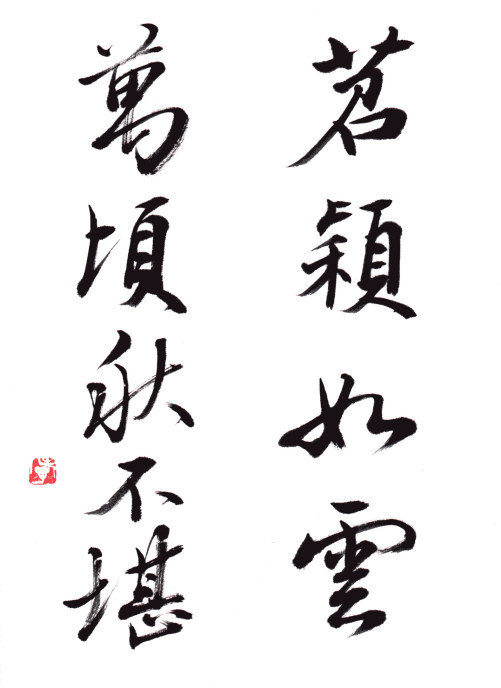 茗穎如雲
萬頃秋不堪